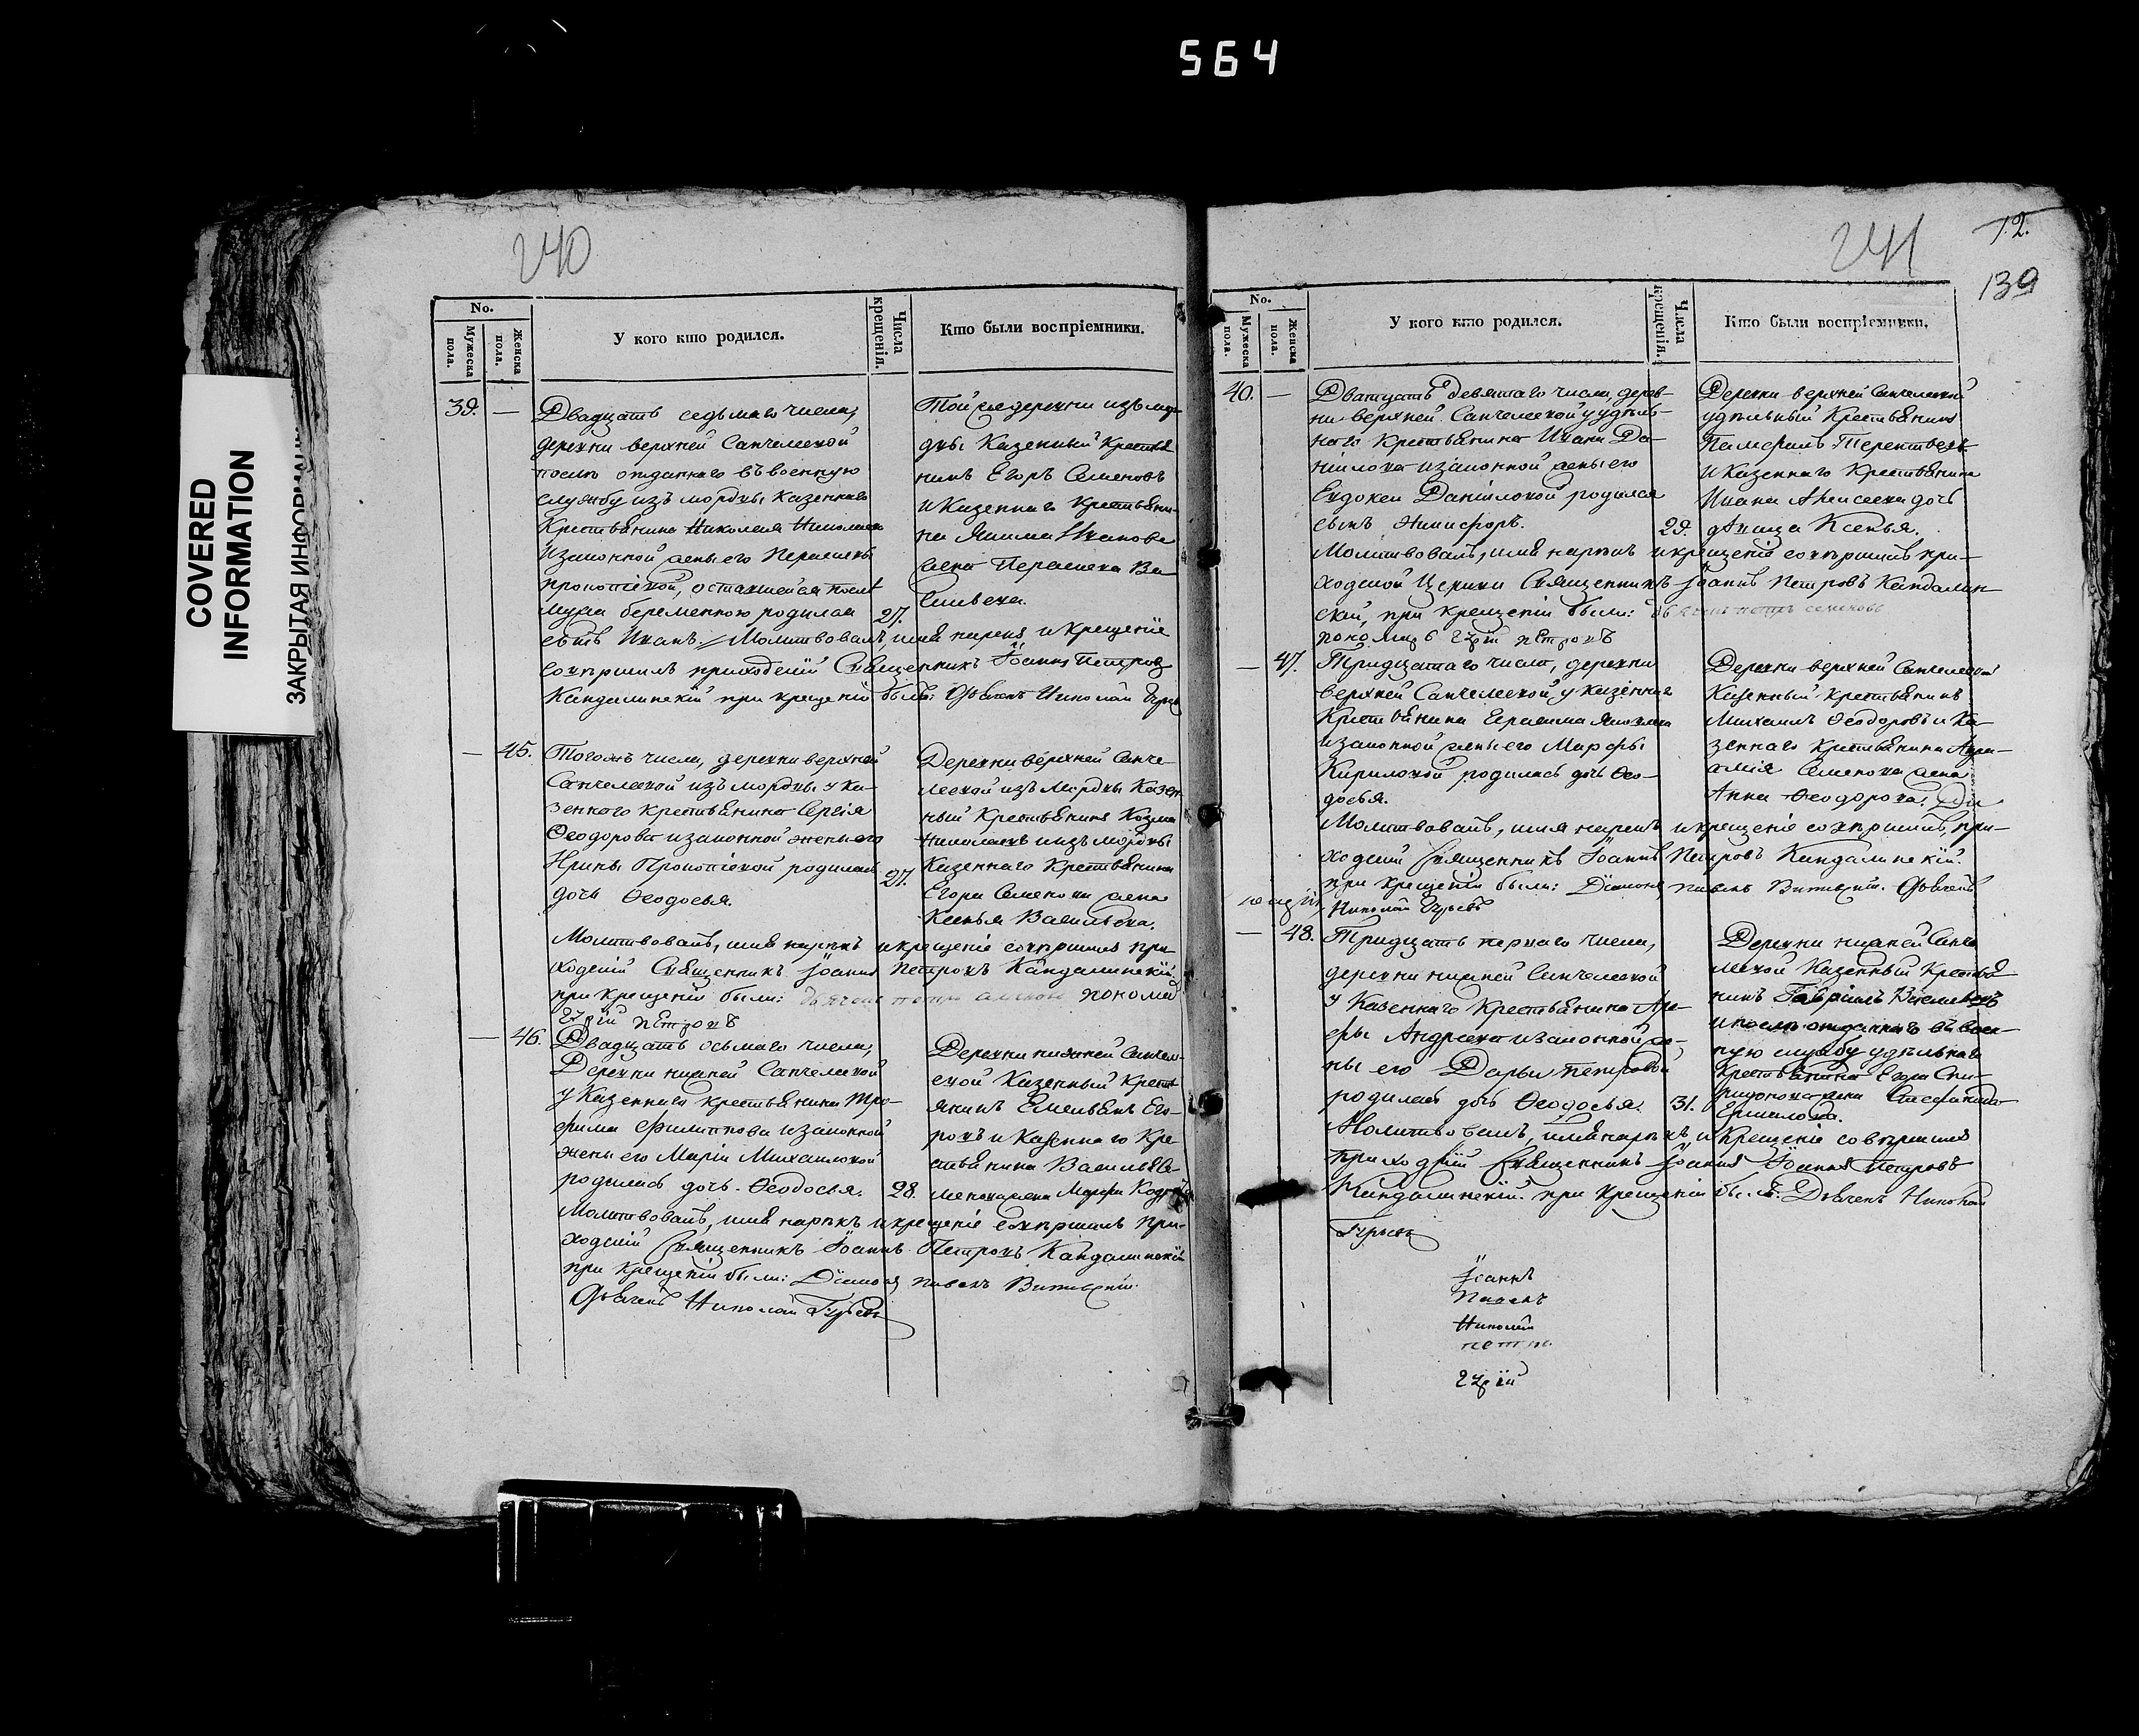 564
COVERED
INFORMATION
ЗАКРЫТАЯ ИНФОРМАЦИЯ
240
No.
Мужеска пола.
Женска пола.
У кого кто родился.
Числа крещенія.
Кто были воспріемники.
39. —
Двадцать седьмаго числа,
деревни верхней Санчелеевой
после отданнаго въ военную
службу изъ мордвы казеннаго
Крестьянина Николая Николаева
и законной жены его
оставшейся после
мужа беременною родился 27.
сынъ Иванъ. Молитвовалъ, имя нарекъ и крещеніе
совершилъ приходскій Священникъ Іоаннъ Петровъ
Кандалинскій при крещеніи былъ: Дьячекъ Николай Гурьевъ
Той же деревни изъ мор-
двы Казенный Крестья
нинъ Егоръ Семеновъ
и Казеннаго Крестьяни-
на Якима Иванова
жена Ва
сильева.
— 45.
Тогожъ числа, деревни верхней
Санчелеевой изъ мордвы у ка-
зеннаго крестьянина Сергія
Ѳеодорова и законной жены его
Ирины Прокопіевой родилась 27.
дочь Ѳеодосья.
Деревни верхней Санче-
леевой изъ Мордвы Казен
ный Крестьянинъ Козма
Николаевъ и изъ мордвы
Казеннаго Крестьянина
Егора Семенова жена
Ксенья Васильева.
Молитвовалъ, имя нарекъ и крещеніе совершилъ при-
ходскій Священникъ Іоаннъ Петровъ Кандалинскій
при крещеніи были: пономар
Егрій Петровъ
— 46.
Двадцать осьмаго числа,
Деревни нижней Санчелеевой
у Казеннаго крестьянина Тро-
фима Филиппова и законной
жены его Маріи Михайловой
родилась дочь Ѳеодосья. 28.
Деревни нижней Санчел-
еевой Казенный Крест
янинъ Емельянъ Его-
ровъ и Казеннаго Кре
стьянина Василья Се-
менова жена Марфа
Молитвовалъ, имя нарекъ и крещеніе совершилъ при-
ходскій Священникъ Іоаннъ Петровъ Кандалинскій
при крещеніи были: Діаконъ Павелъ
Дьячекъ Николай Гурьевъ
241
12.
139
No.
Мужеска пола.
Женска пола.
У кого кто родился.
Числа крещенія.
Кто были воспріемники.
40. —
Дватцать девятаго числа, дерев-
ни верхней Санчелеевой у удѣль-
наго Крестьянина Ивана Да-
нилова и законной жены его
Евдокеи Даниловой родился
сынъ Никифоръ. 29.
Деревни верхней Санчелеевой
удѣльный Крестьянинъ
Памфилъ Терентьевъ
и Казеннаго Крестьянина
Ивана Алексеева дочь
дѣвица Ксенья.
Молитвовалъ, имя нарекъ и крещеніе совершилъ при-
ходской Церкви Священникъ Іоаннъ Петровъ Кандалин
скій, при крещеніи были: дьячекъ петръ семеновъ
пономарь Егрій Петровъ
— 47.
Тридцатаго числа, деревни
верхней Санчелеевой, у казеннаго
Крестьянина Герасима Яковлева
и законной жены его Марфы
Кириловой родилась дочь Ѳео-
досья.
Деревни верхней Санчелеевой
Казенный крестьянинъ
Михаилъ Ѳеодоровъ и Ка-
зеннаго Крестьянина Авра-
амія Семенова жена
Анна Ѳеодорова.
Молитвовалъ, имя нарекъ и крещеніе совершилъ, при-
ходскій Священникъ Іоаннъ Петровъ Кандалинскій.
при крещеніи были: Діаконъ Павелъ Дьячекъ
Николай Гурьевъ
— 48.
Тридцать перваго числа,
деревни нижней Санчелеевой
у Казеннаго Крестьянина Аре-
фы Андреева и законной же-
ны его Дарьи Петровой
родилась дочь Ѳеодосья. 31.
Деревни нижней Санче
леевой Казенный Крестья
нинъ Гавріилъ Васильевъ
и после отданнаго въ воен-
ную службу удѣльнаго
Крестьянина Егора Спи-
ридонова жена Стефанида
Ермилова.
Молитвовалъ, имя нарекъ и Крещеніе совершилъ
приходскій Священникъ Іоаннъ Іоаннъ Петровъ
Кандалинскій. при крещеніи былъ: Дьячекъ Николай
Гурьевъ
Іоаннъ
Павелъ
Николай
петръ
Егрій